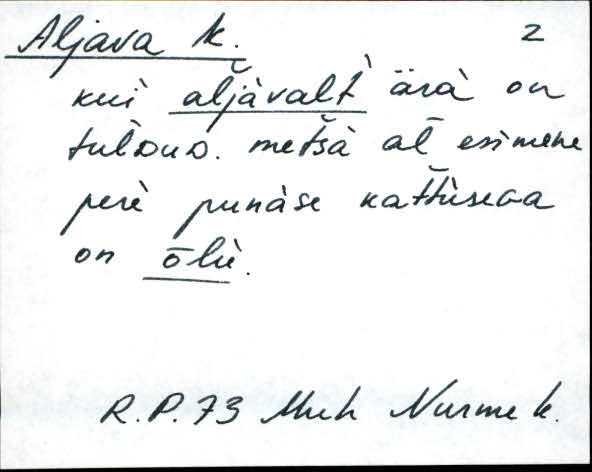 Aljava k. 2
kui al̆jàvalt̀ ärà on
tulᴅuᴅ. met̆sà al̄ esimene
perè punàse kat̆tùseɢa
on ōlù.
R.P.73 Muh Nurme k.